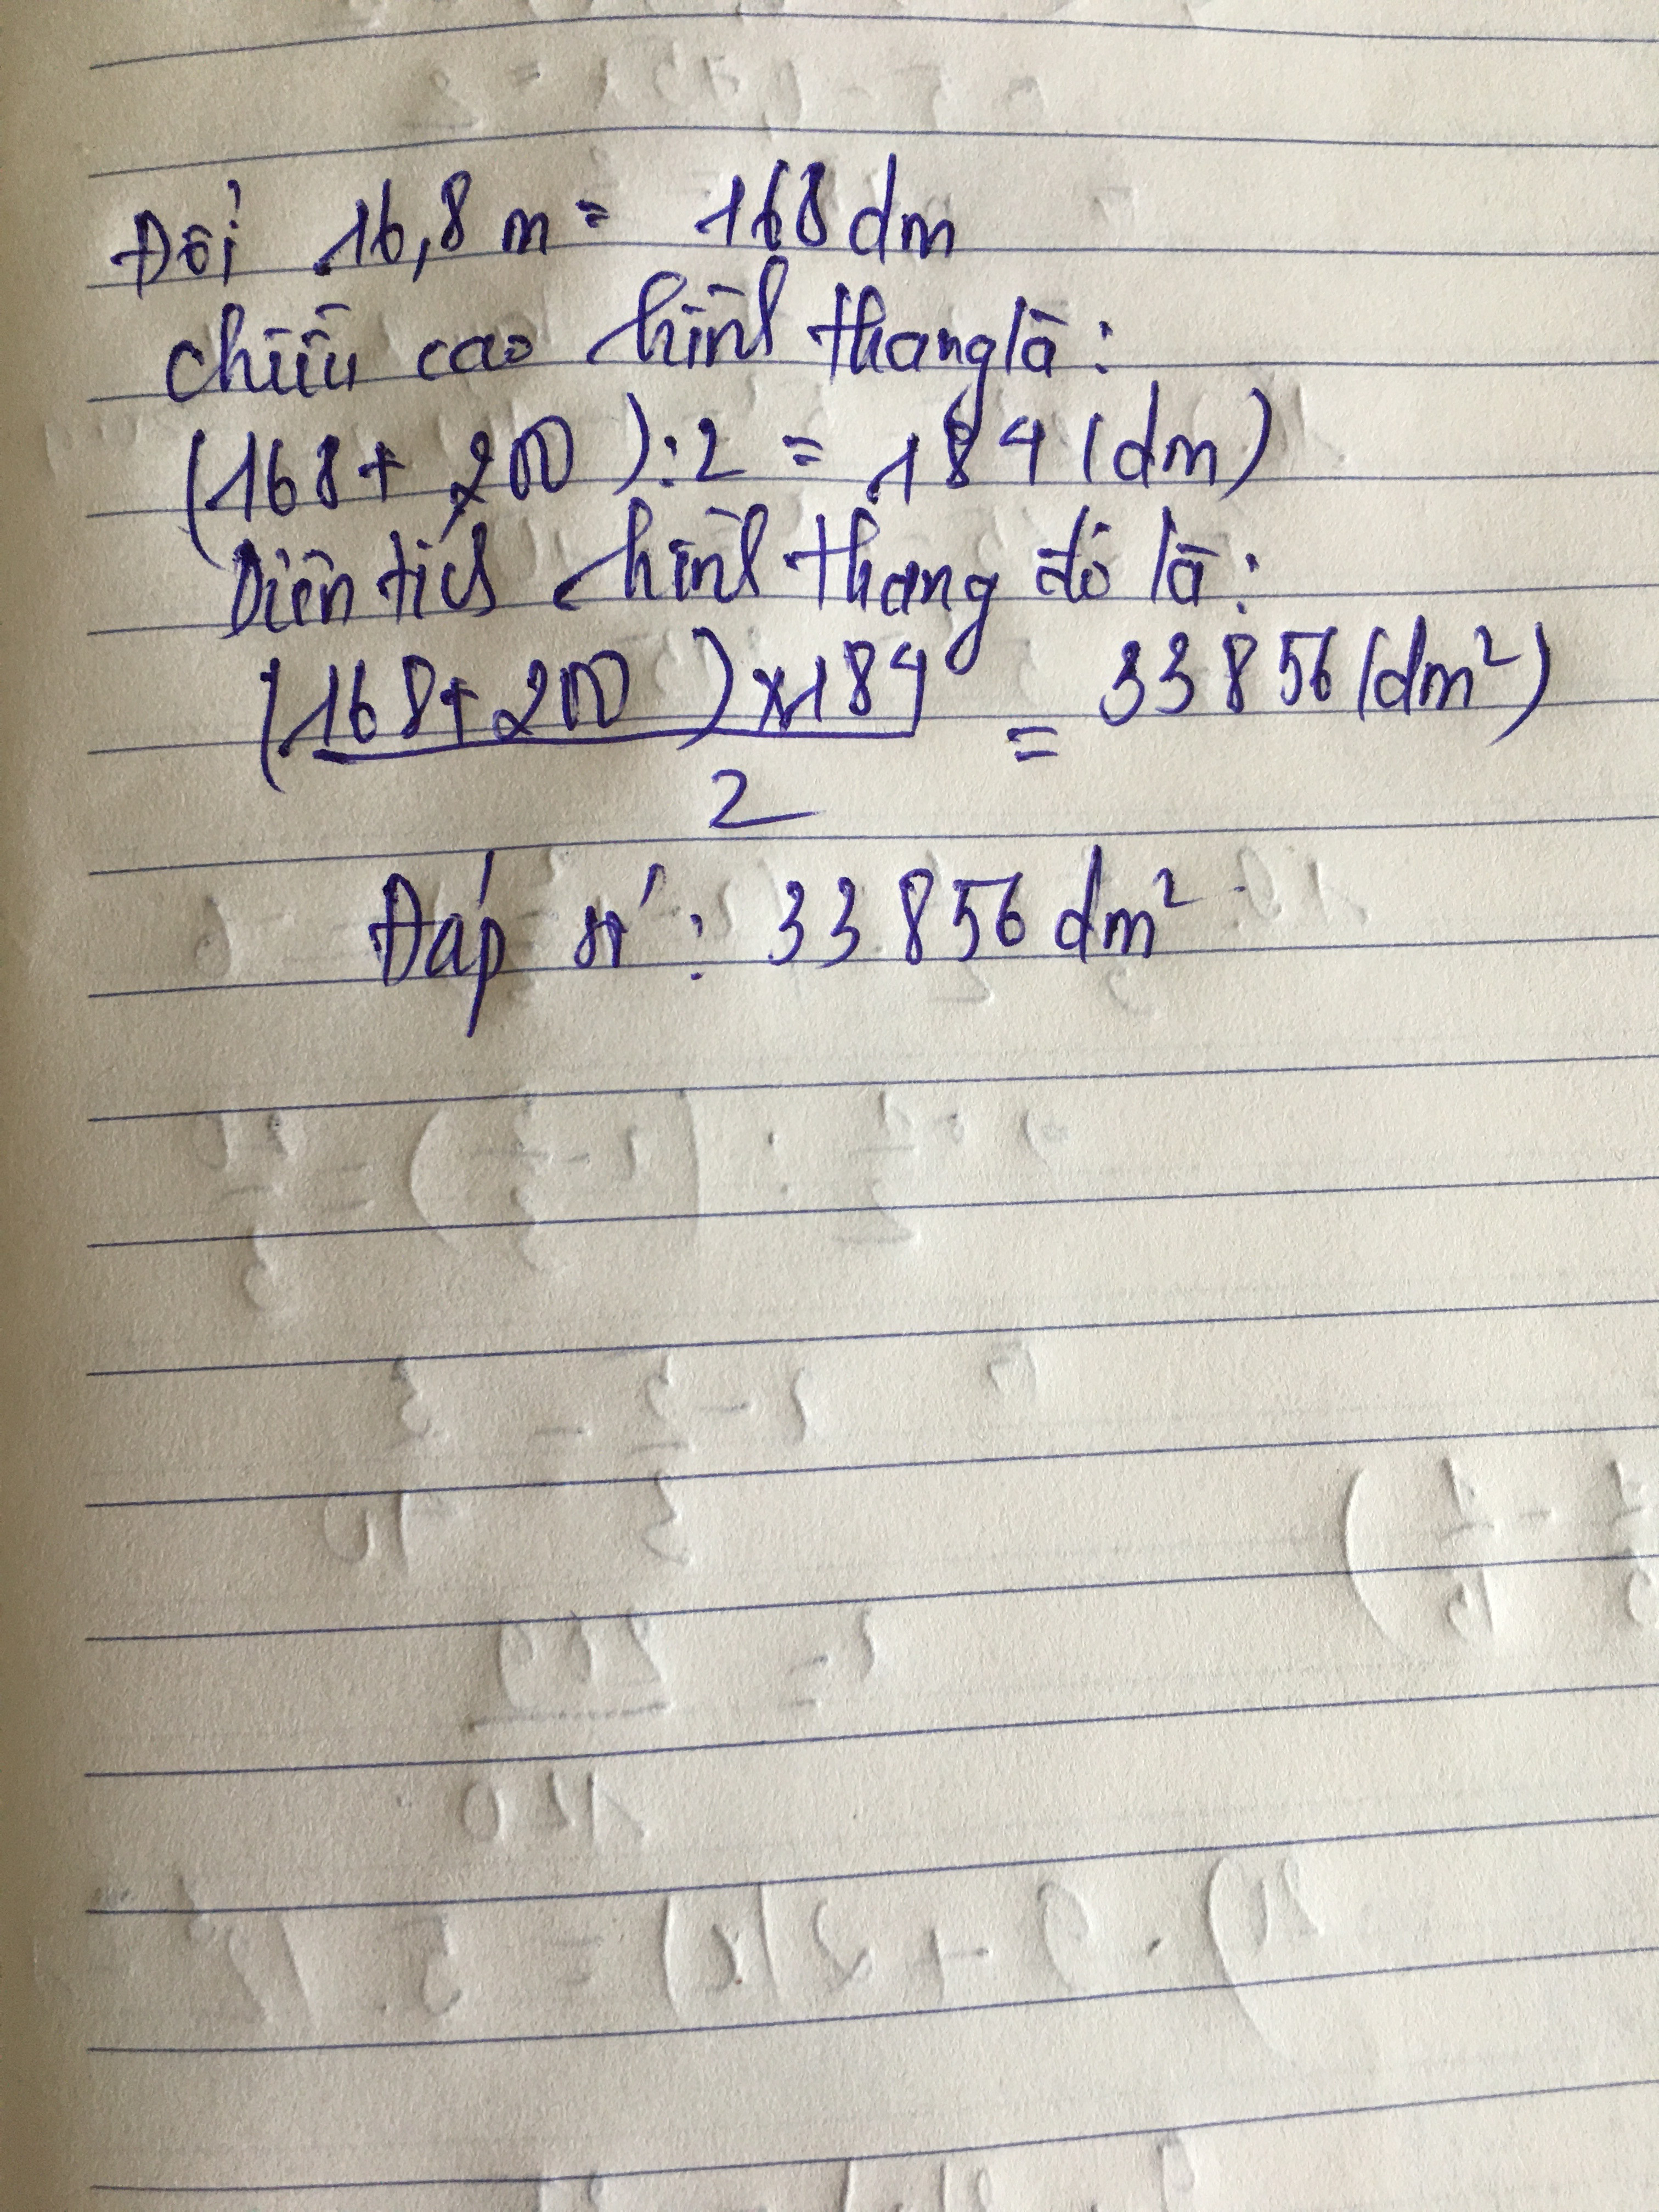 Đổi 16,8 m = 168 dm
chiều cao hình thang là:
(168 + 200) : 2 = 184 (dm)
Diện tích hình thang đó là:
(168 + 200) x 184 / 2 = 33 856 (dm²)
Đáp số: 33 856 dm²